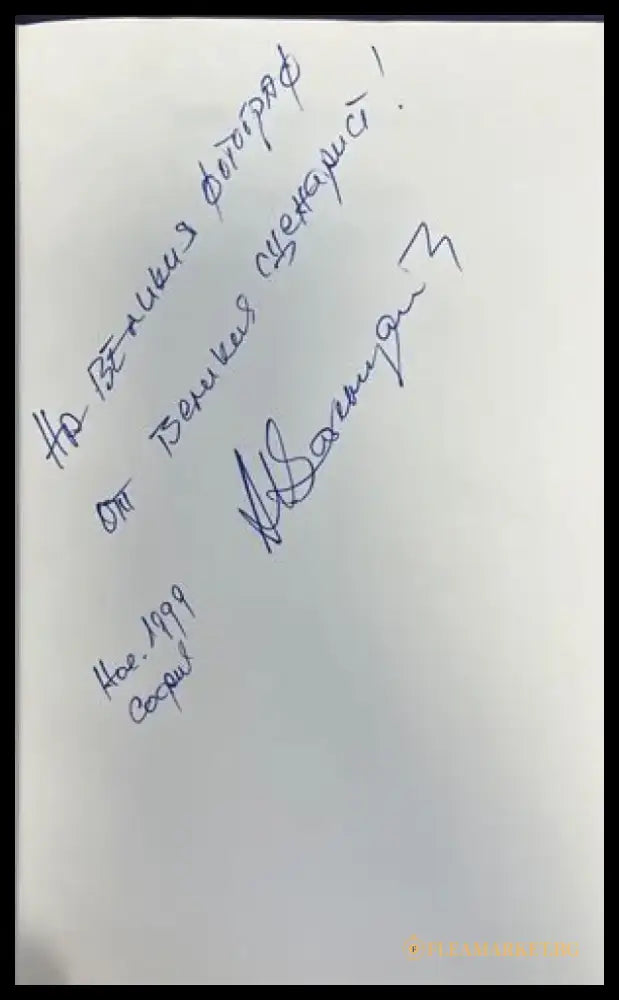 На Великия фотограф
от Великия сценарист!
Ное. 1999
София
FLEAMARKET.BG